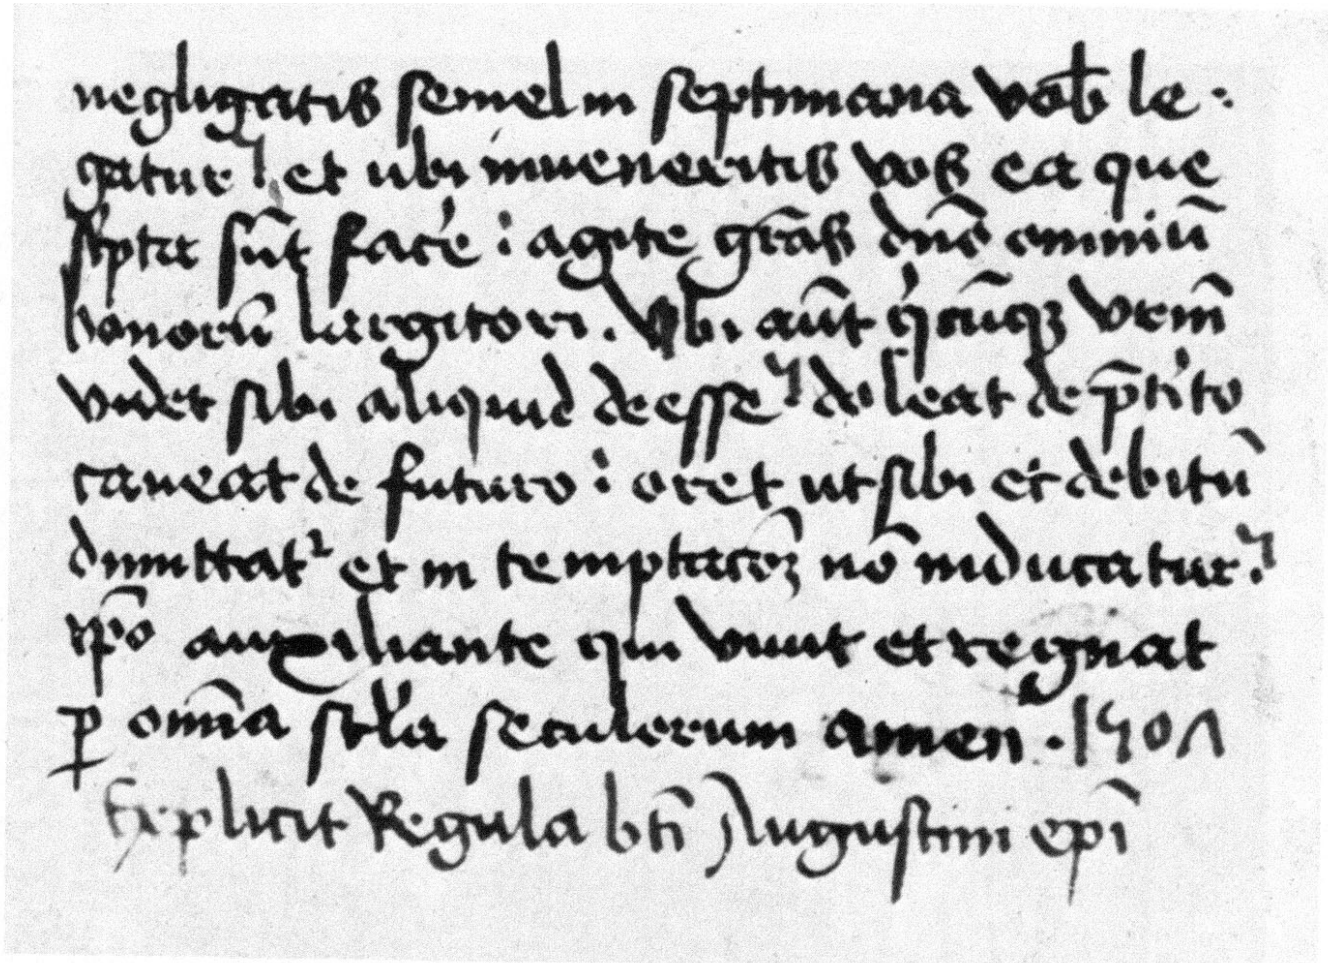 negligatis semel in septimana vob̄ le.
gatur et ubi inveneritis vos ea que
sc'pta sūt facē : agite gr̄as dn̄o omniū
bonorū largitori. Vbi aūt q'cūq3 vrm̄
videt sibi aliquid deesse doleat de p̄tito
caveat de futuro : oret ut sibi et debitū
dimittat² et in temptac̄o3 nō inducatur.
xp̄o auxiliante qui vivit et regnat
p̱ om̄ia sc̄la seculorum amen. 1507
Explicit Regula bt̄i Augustini ep̄i